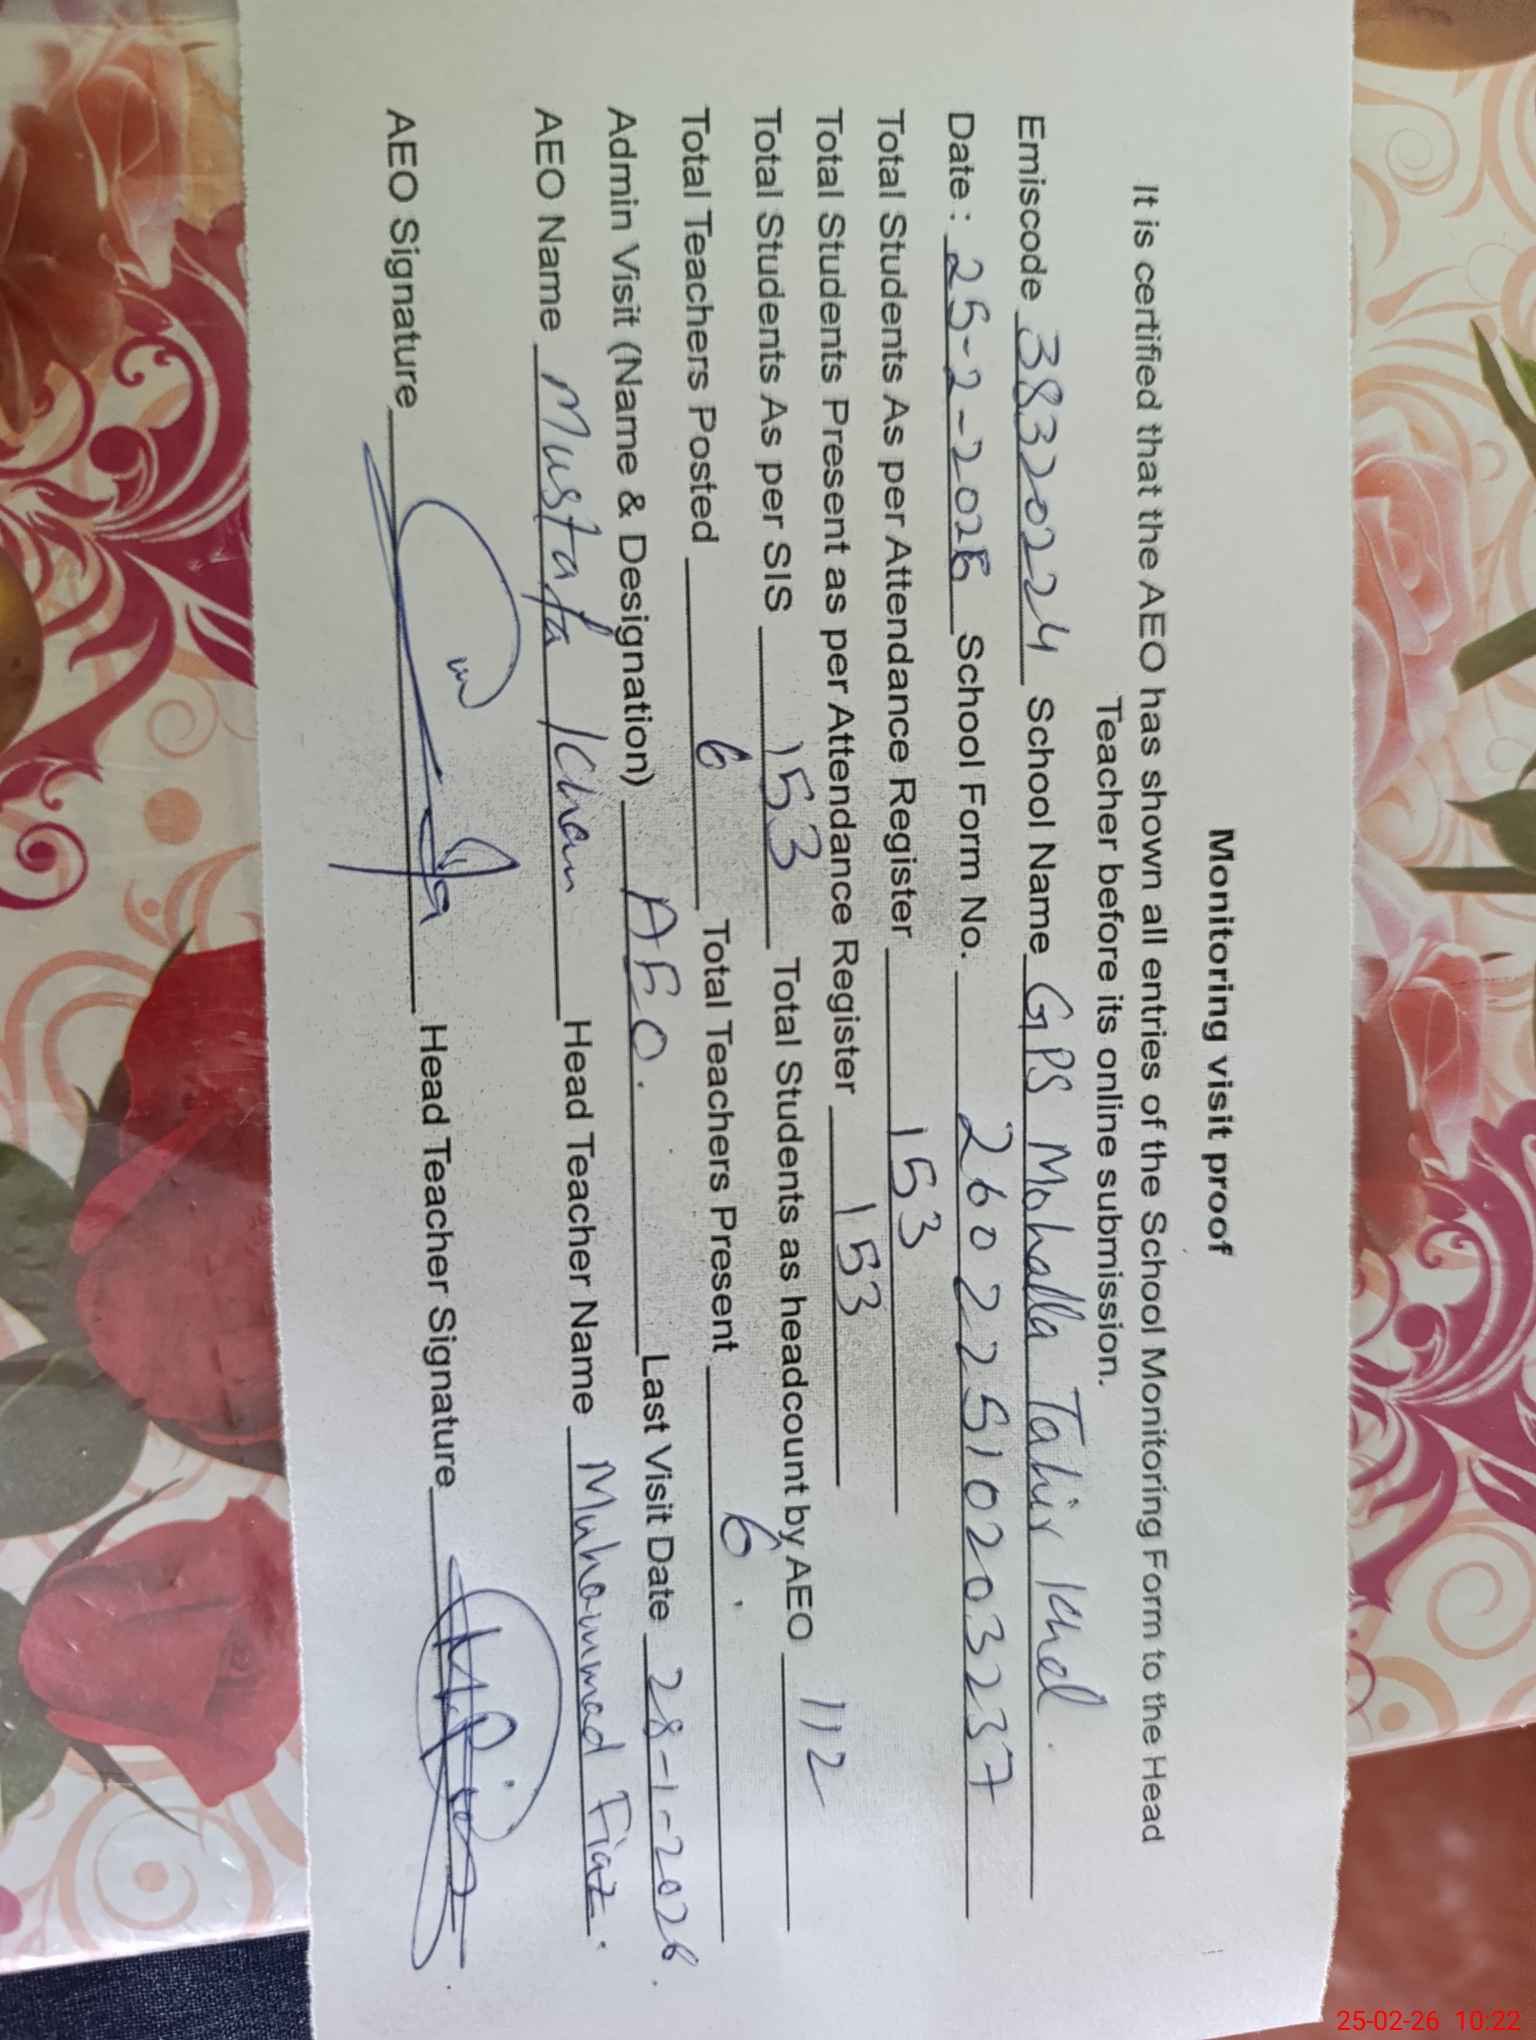 Monitoring visit proof
It is certified that the AEO has shown all entries of the School Monitoring Form to the Head
Teacher before its online submission.
Emiscode 38320224 School Name GPS Mohalla Tahir Khel.
Date: 25-2-2026 School Form No. 26022510203237
Total Students As per Attendance Register 153
Total Students Present as per Attendance Register 153
Total Students As per SIS 153 Total Students as headcount by AEO 112
Total Teachers Posted 6 Total Teachers Present 6.
Admin Visit (Name & Designation) AEO. Last Visit Date 28-1-2026.
AEO Name Mustafa Khan Head Teacher Name Muhammad Fiaz.
AEO Signature Head Teacher Signature
25-02-26 10:22